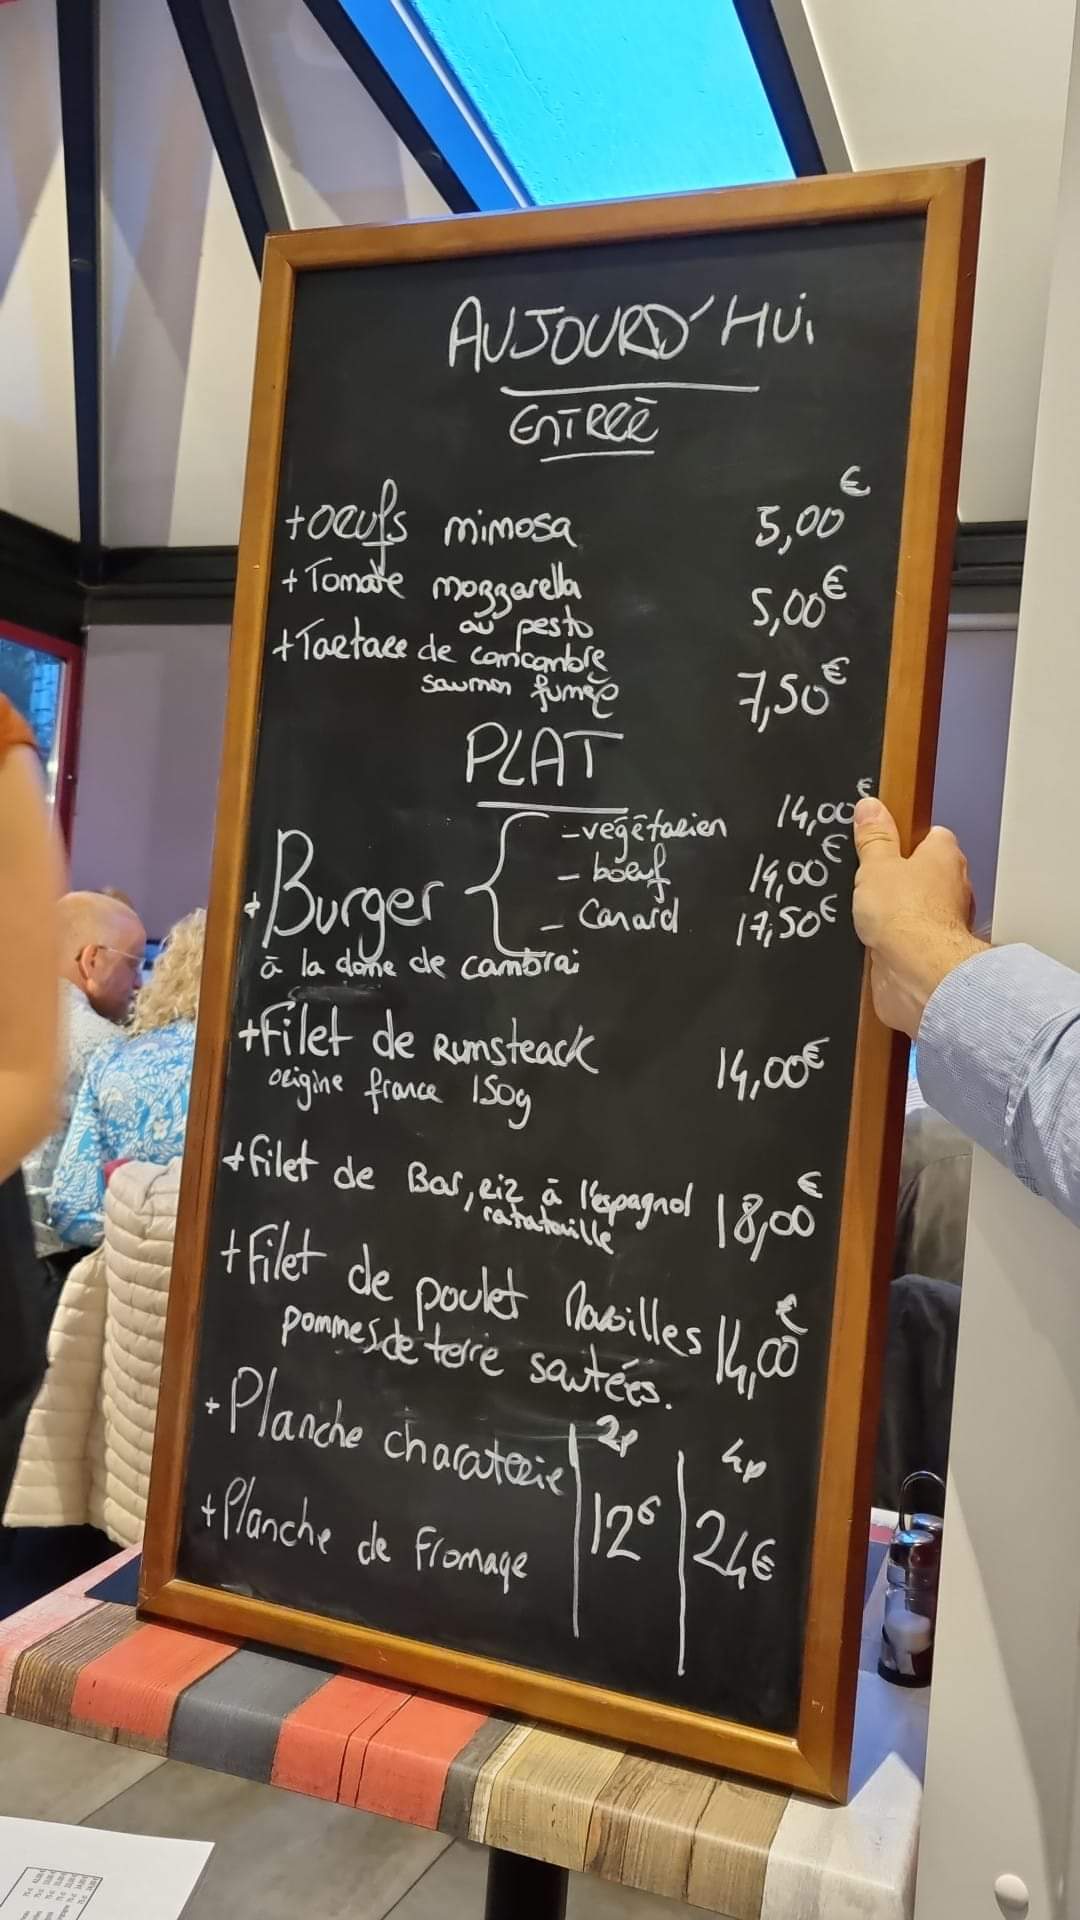 AUJOURD'HUi
ENTREE
+ oeufs mimosa 5,00€
+ Tomate mozzarella 5,00€
au pesto
+ Tartare de concombre
saumon fumée 7,50€
PLAT
- végétarien 14,00€
- boeuf 14,00€
+ Burger
- Canard 17,50€
à la dome de cambrai
+ Filet de Rumsteack 14,00€
origine france 150g
+ filet de Bar, riz à l'espagnol 18,00€
ratatouille
+ Filet de poulet 14,00€
pommes de terre sautées.
2p 4p
+ Planche charcuterie
12€ 24€
+ Planche de fromage